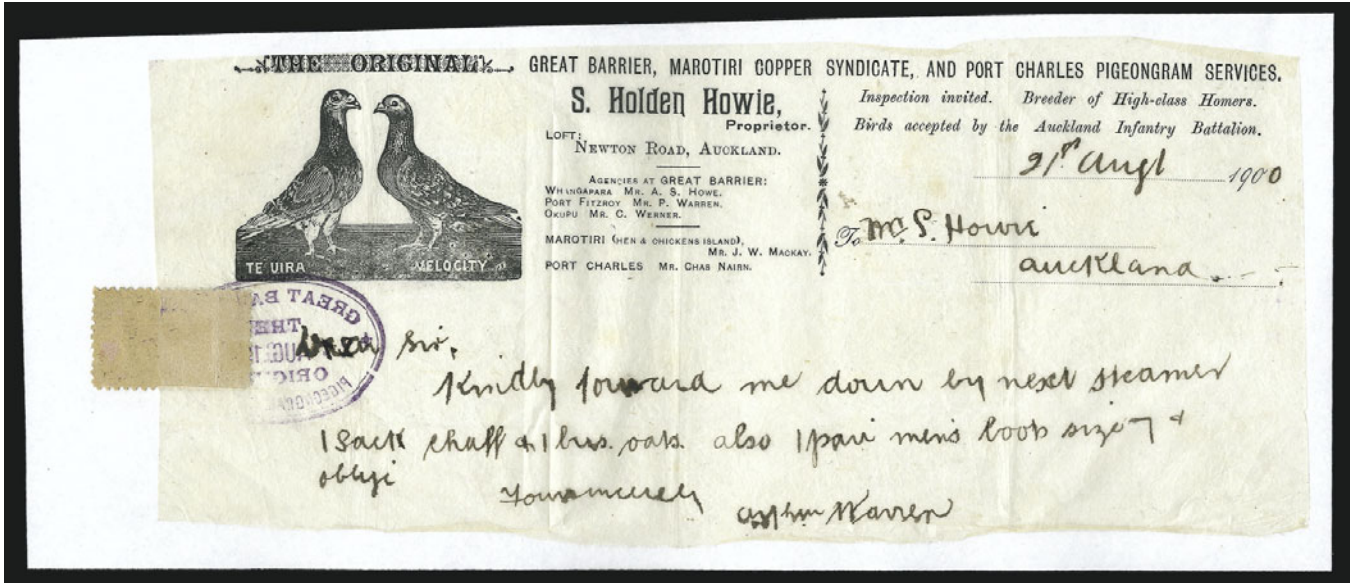 THE ORIGINAL GREAT BARRIER, MAROTIRI COPPER SYNDICATE, AND PORT CHARLES PIGEONGRAM SERVICES.
S. Holden Howie,
Proprietor.
LOFT:
NEWTON ROAD, AUCKLAND.
AGENCIES AT GREAT BARRIER:
WHANGAPARA MR. A. S. HOWE.
PORT FITZROY MR. P. WARREN.
OKUPU MR. C. WERNER.
MAROTIRI (HEN & CHICKENS ISLAND),
MR. J. W. MACKAY.
PORT CHARLES MR. CHAS NAIRN.
Inspection invited. Breeder of High-class Homers.
Birds accepted by the Auckland Infantry Battalion.
21st Augt 1900
To Mr. S. Howie
Auckland
TE UIRA VELOCITY
GREAT BA
THE
AUG
ORIG
PIGEONGRA
Dear Sir,
Kindly forward me down by next steamer
1 Sack chaff & 1 bus. oats. also 1 pair men's boots size 7 &
oblige
Yours sincerely
Warren